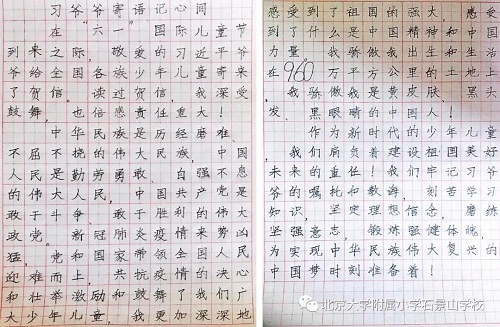 习爷爷寄语记心间
在“六一”国际儿童节
到来之际，敬爱的习近平爷
爷给全国各族少年儿童寄来
了贺信。读过贺信，我深受
鼓舞，也倍感责任重大！
中华民族是历经磨难、
不屈不挠的伟大民族，中国
人民是勤劳勇敢、自强不息
的伟大人民，中国共产党是
敢于斗争、敢于胜利的伟大
政党。新冠肺炎疫情来势凶
猛，党和国家带领全国人民
迎难而上，共抗疫情的决心
和壮举激励和鼓舞了我们广
大少年儿童，我更加深深地
感受到了祖国的强大，感受
到了什么是中国精神和中国
力量。我骄傲我出生和生活
在960万平方公里的土地上
，我骄傲我是黄皮肤、黑头
发、黑眼睛的中国人！
作为新时代的少年儿童
，我们肩负着建设祖国美好
未来的重任！我们牢记习爷
爷的嘱托和教诲，刻苦学习
知识，坚定理想信念，磨练
坚强意志，锻炼强健体魄，
为实现中华民族伟大复兴的
中国梦时刻准备着！
北京大学附属小学石景山学校